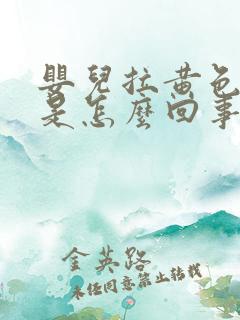 嬰兒拉黃色
是怎麼回事
金英路
未經同意禁止轉載